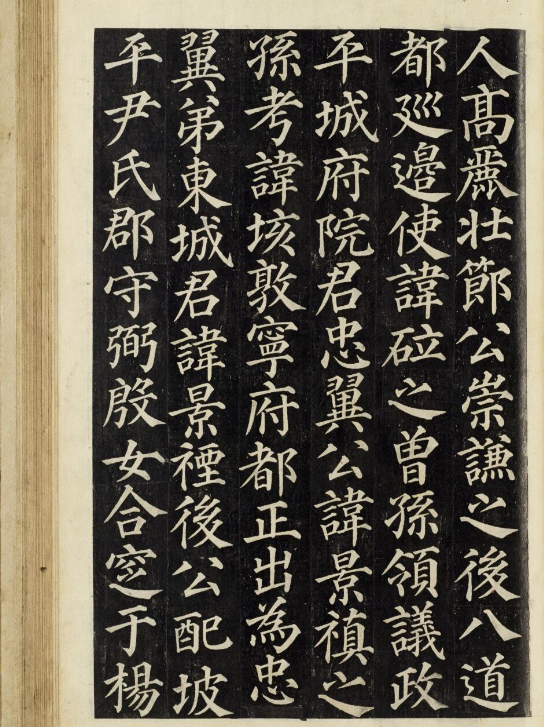 人髙麗壯節公崇謙之後八道
都廵邊使諱砬之曽孫領議政
平城府院君忠翼公諱景禛之
孫考諱垓敦寧府都正出為忠
翼弟東城君諱景禋後公配坡
平尹氏郡守弼殷女合窆于楊